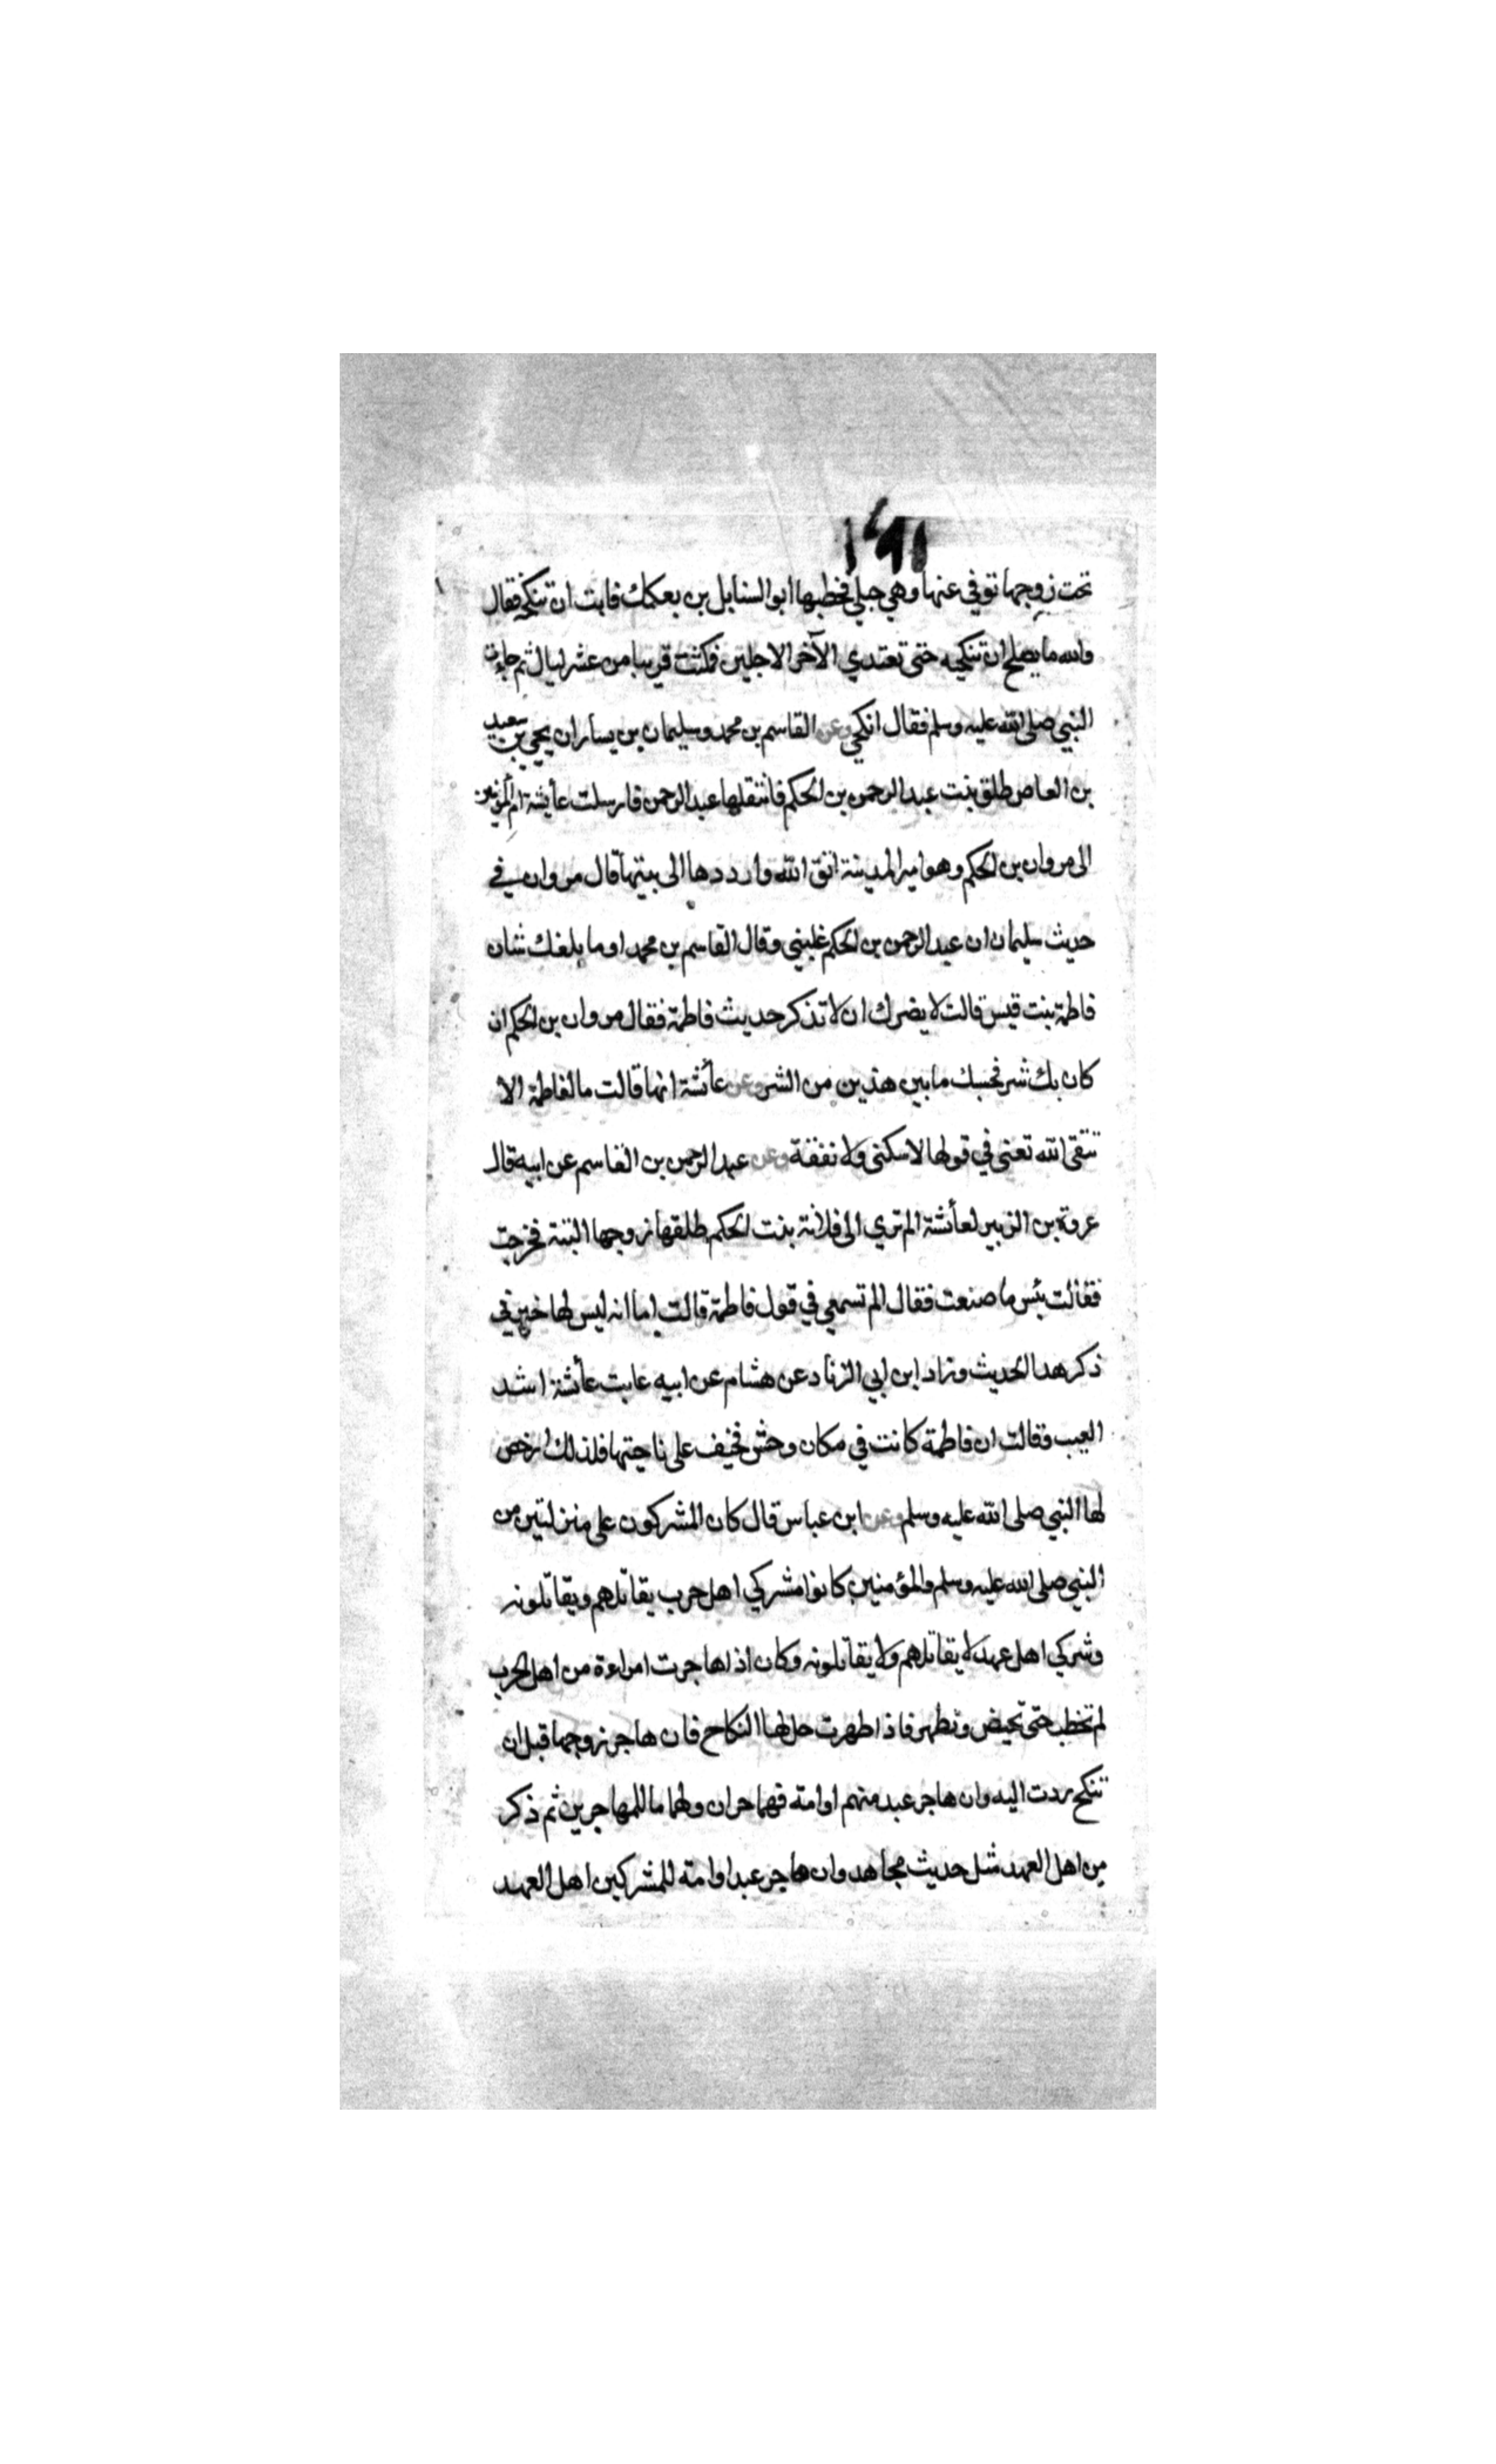 تحت زوجها توفى عنها وهي حبلى فخطبها ابو السنابل بن بعكك فابت ان تنكحه فقال
والله ما يصلح ان تنكحيه حتى تعتدي الآخر الاجلين فمكثت قريبا من عشر ليال ثم جاءت
النبي صلى الله عليه وسلم فقال انكحي وعن القاسم بن محمد وسليمان بن يسار ان يحيى بن سعيد
بن العاص طلق بنت عبد الرحمن بن الحكم فانتقلها عبد الرحمن فارسلت عايشة ام المؤمنين
الى مروان بن الحكم وهو امير المدينة اتق الله وارددها الى بيتها قال مروان في
حديث سليمان ان عبد الرحمن بن الحكم غلبني وقال القاسم بن محمد او ما بلغك شان
فاطمة بنت قيس قالت لا يضرك ان لا تذكر حديث فاطمة فقال مروان بن الحكم ان
كان بك شر فحسبك ما بين هذين من الشر وعن عائشة انها قالت ما لفاطمة الا
تتقى الله تعنى في قولها لا سكنى ولا نفقة وعن عبد الرحمن بن القاسم عن ابيه قال
عروة بن الزبير لعائشة الم تري الى فلانة بنت الحكم طلقها زوجها البتة فخرجت
فقالت بئس ما صنعت فقال الم تسمعي في قول فاطمة قالت اما انه ليس لها خير في
ذكر هدا الحديث وزاد ابن ابي الزناد عن هشام عن ابيه عابت عائشة اشد
العيب وقالت ان فاطمة كانت في مكان وحش فخيف على ناحيتها فلذلك ارخص
لها النبي صلى الله عليه وسلم وعن ابن عباس قال كان المشركون على منزلتين من
النبي صلى الله عليه وسلم والمؤمنين كانوا مشركي اهل حرب يقاتلهم ويقاتلونه
وشركي اهل عهد لا يقاتلهم ولا يقاتلونه وكان اذا هاجرت امراءة من اهل الحرب
لم تخطب حتى تحيض وتطهر فاذا طهرت حل لها النكاح فان هاجر زوجها قبل ان
تنكح ردت اليه وان هاجر عبد منهم او امة فهما حران ولهما ما للمهاجرين ثم ذكر
من اهل العهد مثل حديث مجاهد وان هاجر عبد او امة للمشركين اهل العهد